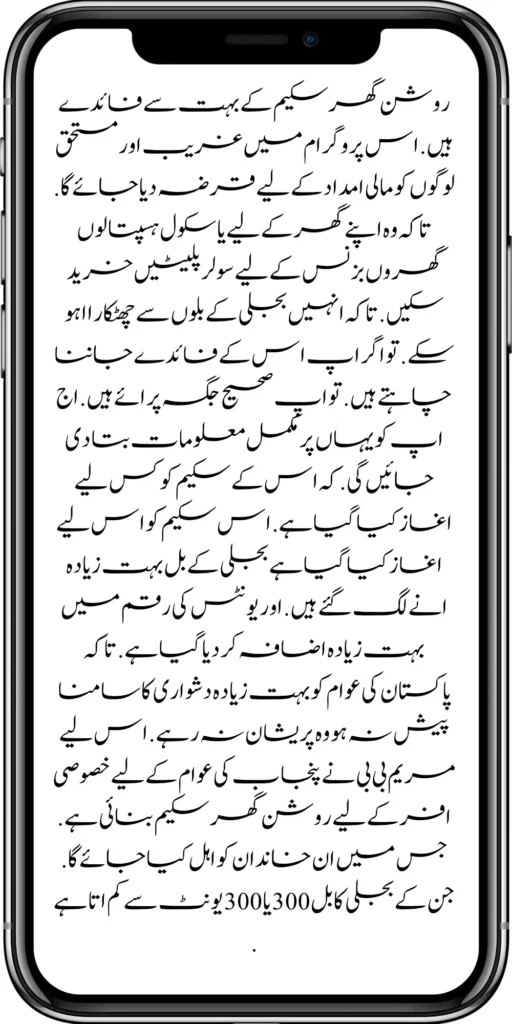 روشن گھر سکیم کے بہت سے فائدے
ہیں. اس پروگرام میں غریب اور مستحق
لوگوں کو مالی امداد کے لیے قرضہ دیا جائے گا.
تاکہ وہ اپنے گھر کے لیے یا سکول ہسپتالوں
گھروں بزنس کے لیے سولر پلیٹیں خرید
سکیں. تاکہ انہیں بجلی کے بلوں سے چھٹکارا اہو
سکے. تو اگر اپ اس کے فائدے جاننا
چاہتے ہیں. تو اپ صحیح جگہ پر ائے ہیں. اج
اپ کو یہاں پر مکمل معلومات بتا دی
جائیں گی. کہ اس کے سکیم کو کس لیے
اغاز کیا گیا ہے. اس سکیم کو اس لیے
اغاز کیا گیا ہے بجلی کے بل بہت زیادہ
انے لگ گئے ہیں. اور یونٹس کی رقم میں
بہت زیادہ اضافہ کر دیا گیا ہے. تاکہ
پاکستان کی عوام کو بہت زیادہ دشواری کا سامنا
پیش نہ ہو وہ پریشان نہ رہے. اس لیے
مریم بی بی نے پنجاب کی عوام کے لیے خصوصی
افر کے لیے روشن گھر سکیم بنائی ہے.
جس میں ان خاندان کو اہل کیا جائے گا.
جن کے بجلی کا بل 300 یا 300 یونٹ سے کم اتا ہے
.